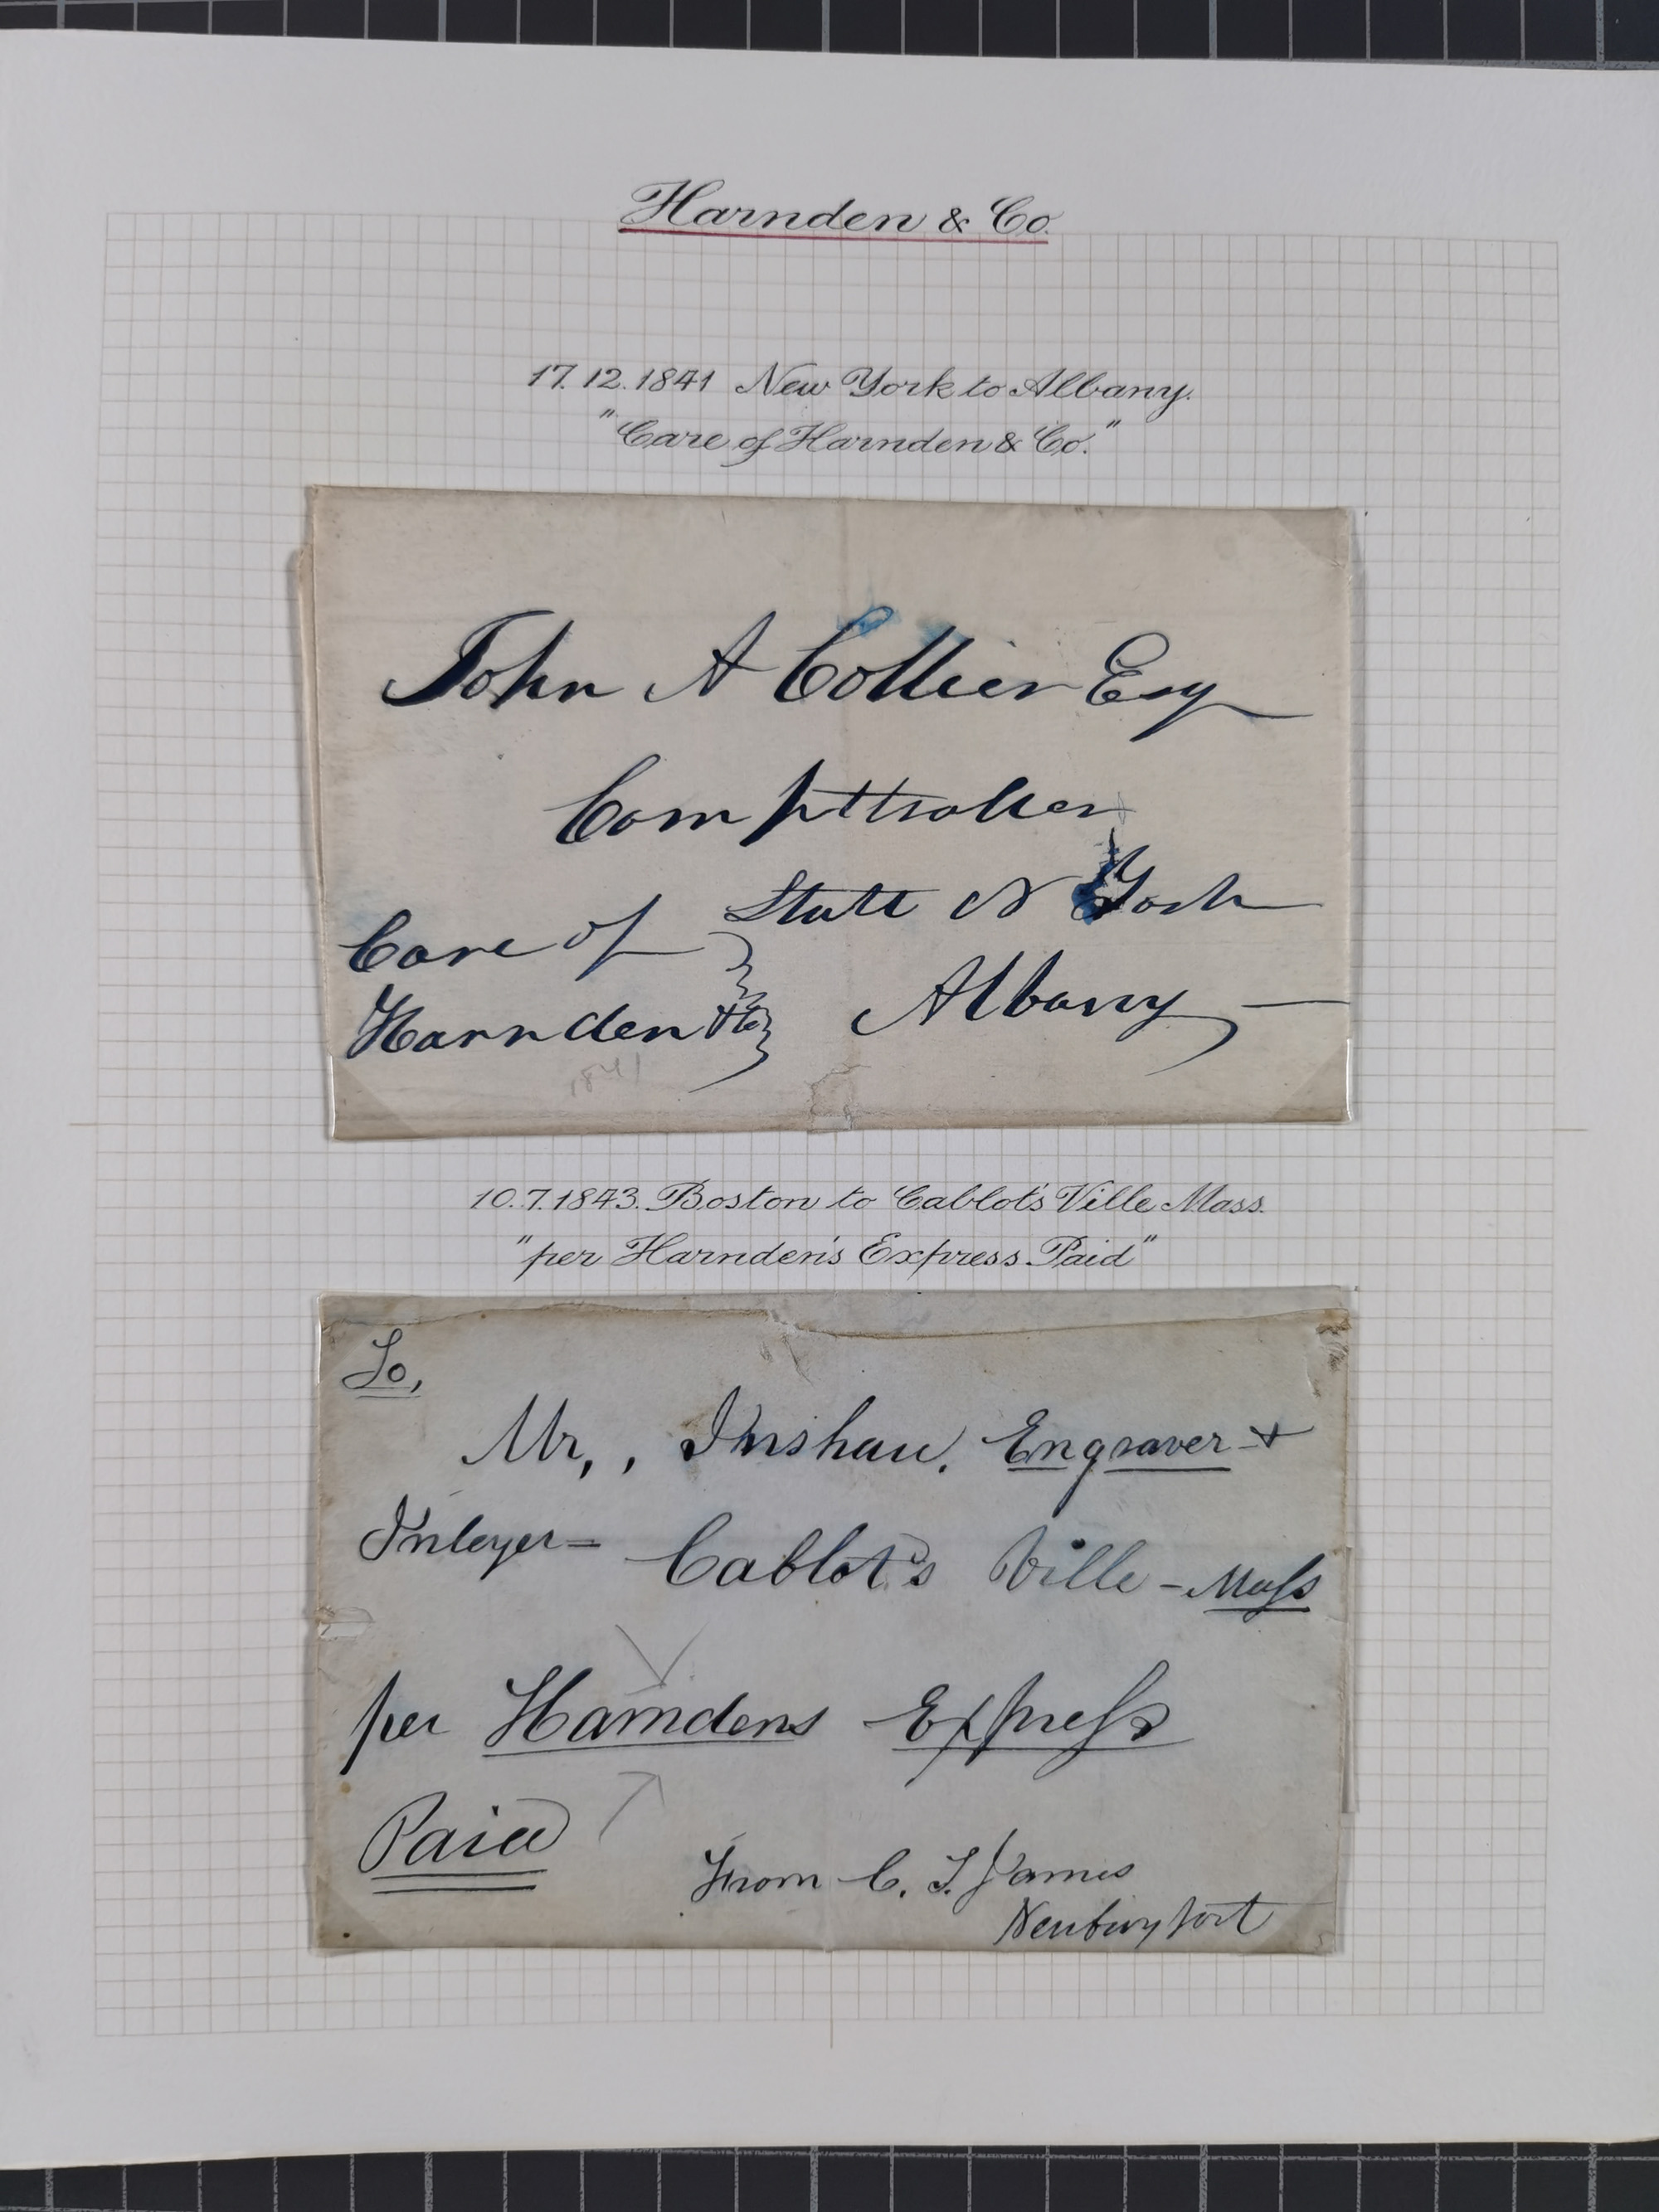 Harnden & Co.
17.12.1841 New York to Albany.
"Care of Harnden & Co."
John A Collier Esq
Compttroller
State N York
Care of
Harnden & Co
Albany —
1841
10.7.1843. Boston to Cablot's Ville Mass.
"per Harnden's Express Paid"
To,
Mr,, Inshaw, Engraver +
Inleyer = Cablot's Ville - Mass
per Harndens Express
Paid
From C. T. James
Newburyport